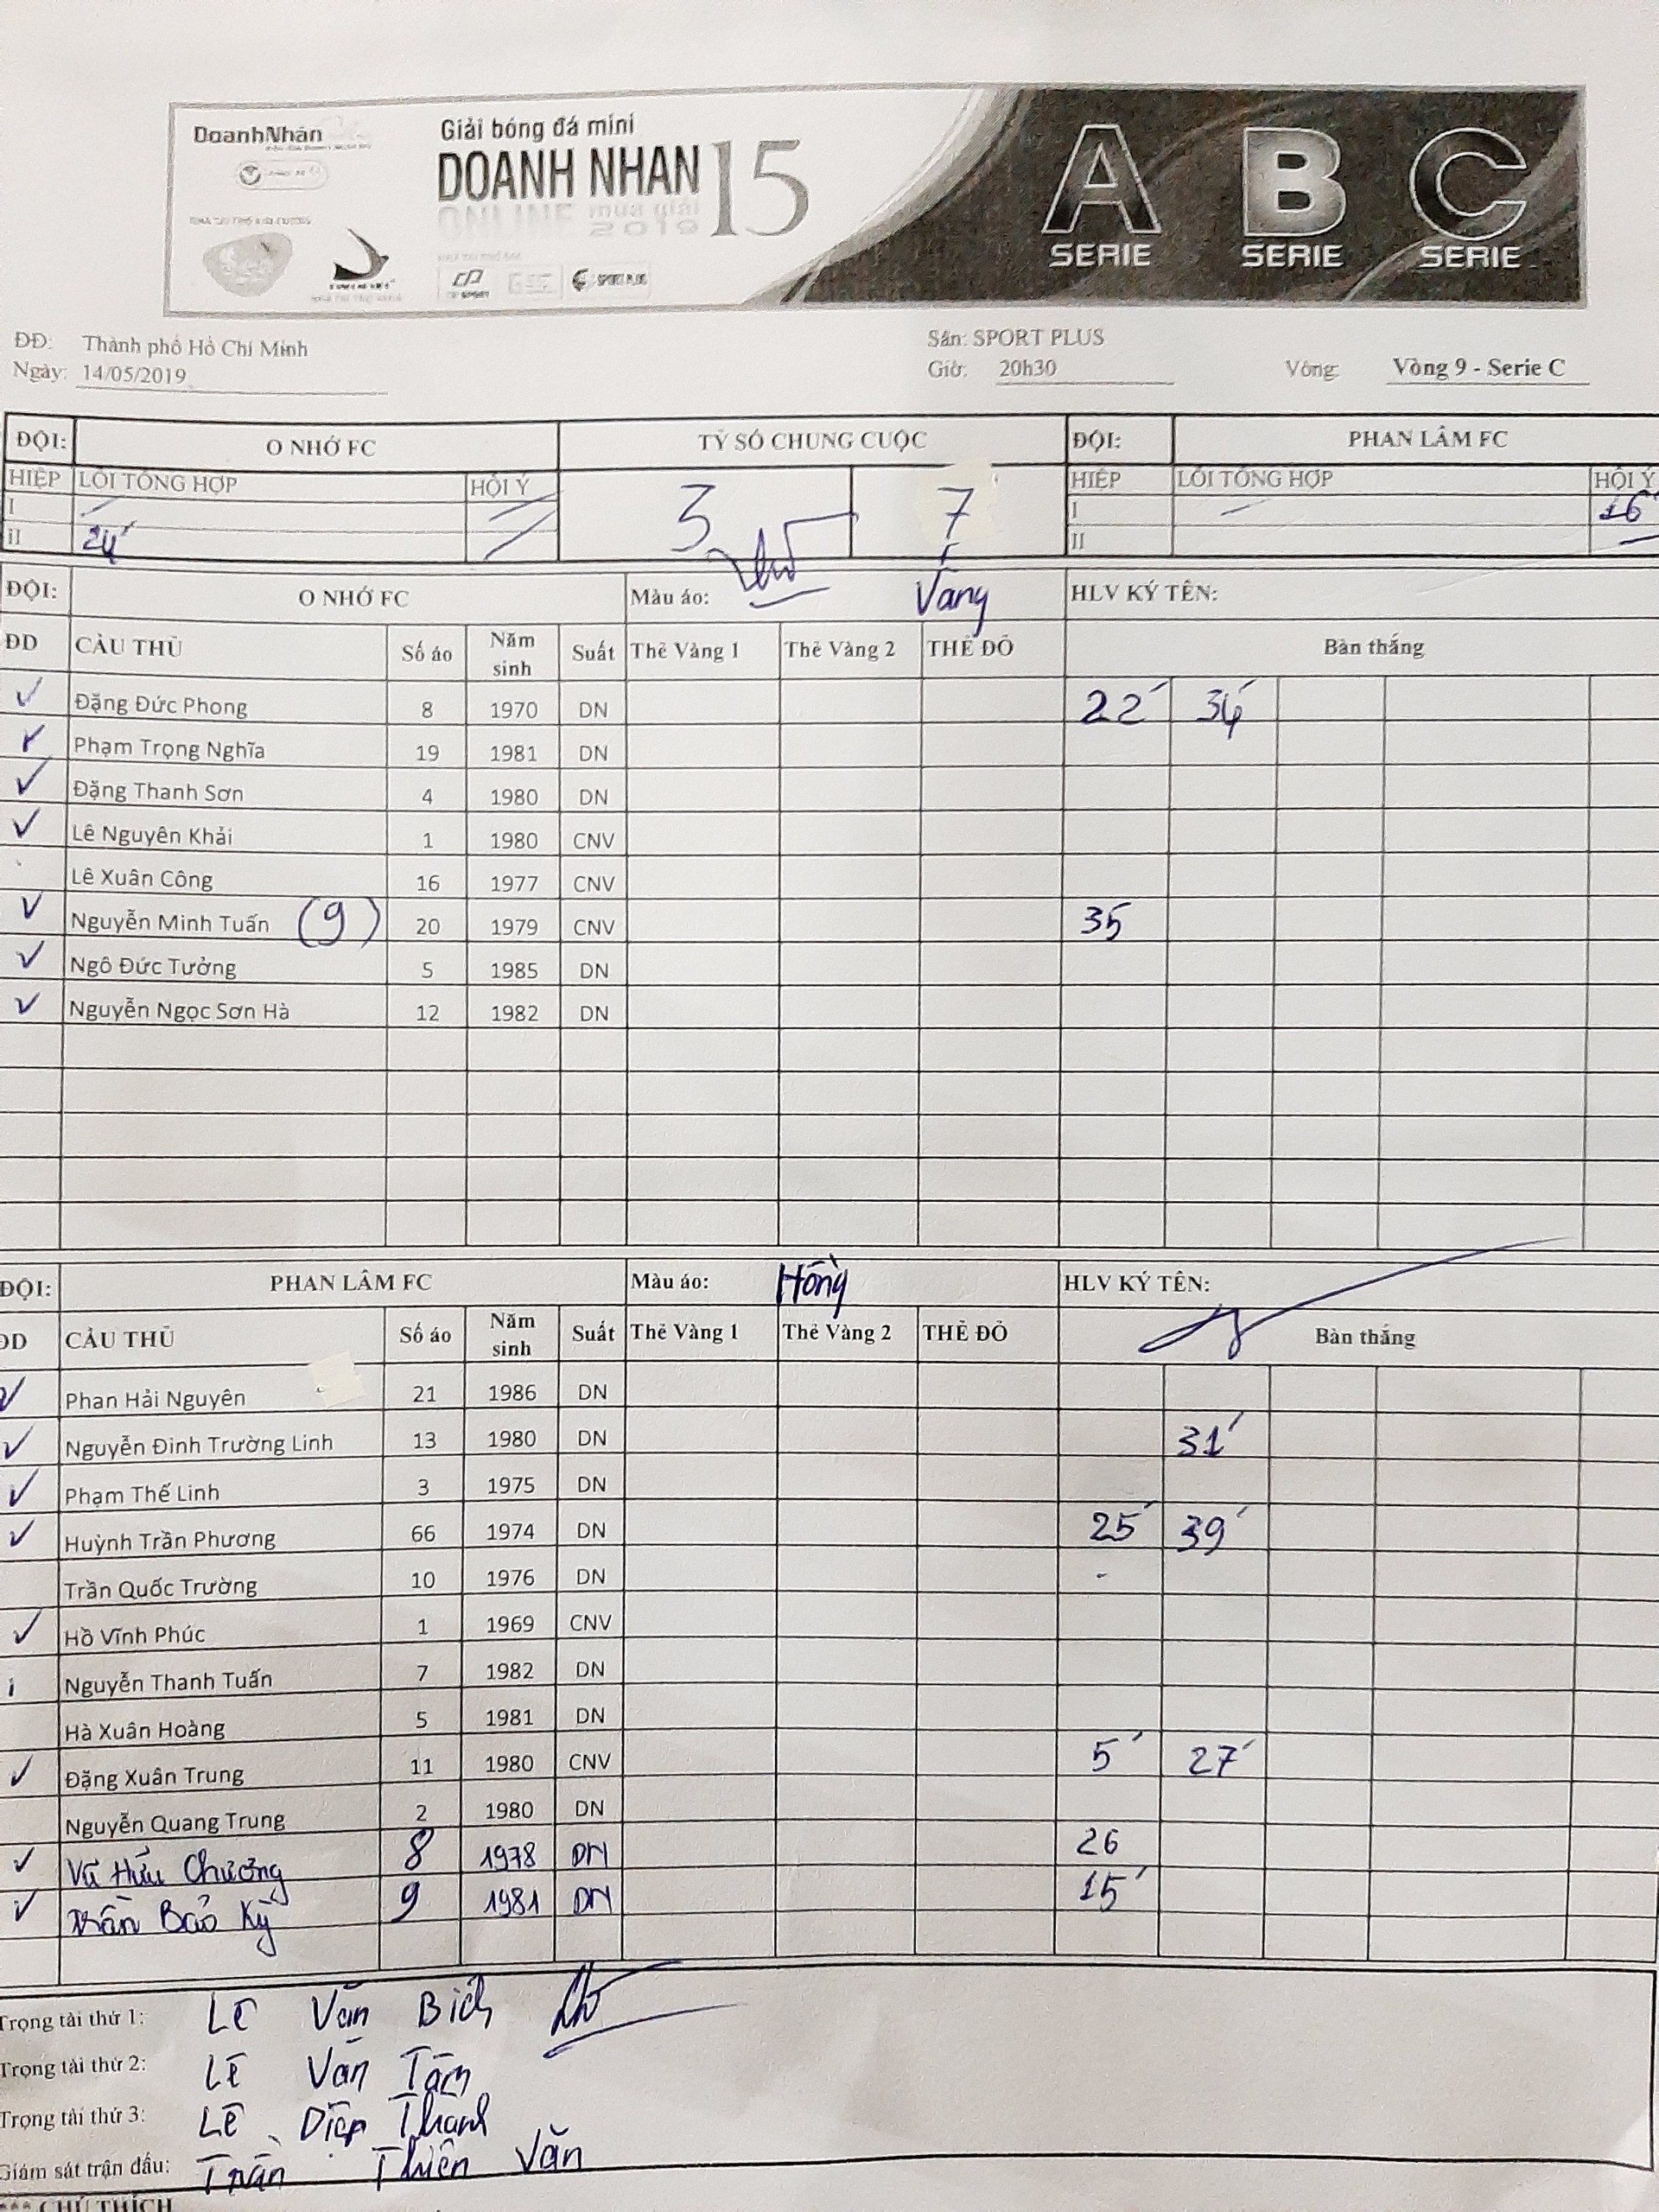 DoanhNhân
Giải bóng đá mini
DOANH NHAN 15
ONLINE mùa giải
2019
A B C
SERIE SERIE SERIE
SPORT PLUS
ĐĐ: Thành phố Hồ Chí Minh Sân: SPORT PLUS
Ngày: 14/05/2019 Giờ: 20h30 Vòng: Vòng 9 - Serie C
ĐỘI: O NHỚ FC TỶ SỐ CHUNG CUỘC ĐỘI: PHAN LÂM FC
HIỆP LỖI TỔNG HỢP HỘI Ý 3 7 HIỆP LỖI TỔNG HỢP HỘI Ý
I I 16'
II 24' II
ĐỘI: O NHỚ FC Màu áo: Vàng HLV KÝ TÊN:
ĐD CẦU THỦ Số áo Năm sinh Suất Thẻ Vàng 1 Thẻ Vàng 2 THẺ ĐỎ Bàn thắng
Đặng Đức Phong 8 1970 DN 22' 34'
Phạm Trọng Nghĩa 19 1981 DN
Đặng Thanh Sơn 4 1980 DN
Lê Nguyên Khải 1 1980 CNV
Lê Xuân Công 16 1977 CNV
Nguyễn Minh Tuấn (9) 20 1979 CNV 35
Ngô Đức Tưởng 5 1985 DN
Nguyễn Ngọc Sơn Hà 12 1982 DN
ĐỘI: PHAN LÂM FC Màu áo: Hồng HLV KÝ TÊN:
ĐD CẦU THỦ Số áo Năm sinh Suất Thẻ Vàng 1 Thẻ Vàng 2 THẺ ĐỎ Bàn thắng
Phan Hải Nguyên 21 1986 DN
Nguyễn Đình Trường Linh 13 1980 DN 31'
Phạm Thế Linh 3 1975 DN
Huỳnh Trần Phương 66 1974 DN 25' 39'
Trần Quốc Trường 10 1976 DN
Hồ Vĩnh Phúc 1 1969 CNV
Nguyễn Thanh Tuấn 7 1982 DN
Hà Xuân Hoàng 5 1981 DN
Đặng Xuân Trung 11 1980 CNV 5' 27'
Nguyễn Quang Trung 2 1980 DN
Vũ Hữu Chương 8 1978 DN 26
Trần Bảo Kỳ 9 1981 DN 15'
Trọng tài thứ 1: Lê Văn Bích
Trọng tài thứ 2: Lê Văn Tâm
Trọng tài thứ 3: Lê Diệp Thanh
Giám sát trận đấu: Trần Thiên Văn
*** CHÚ THÍCH